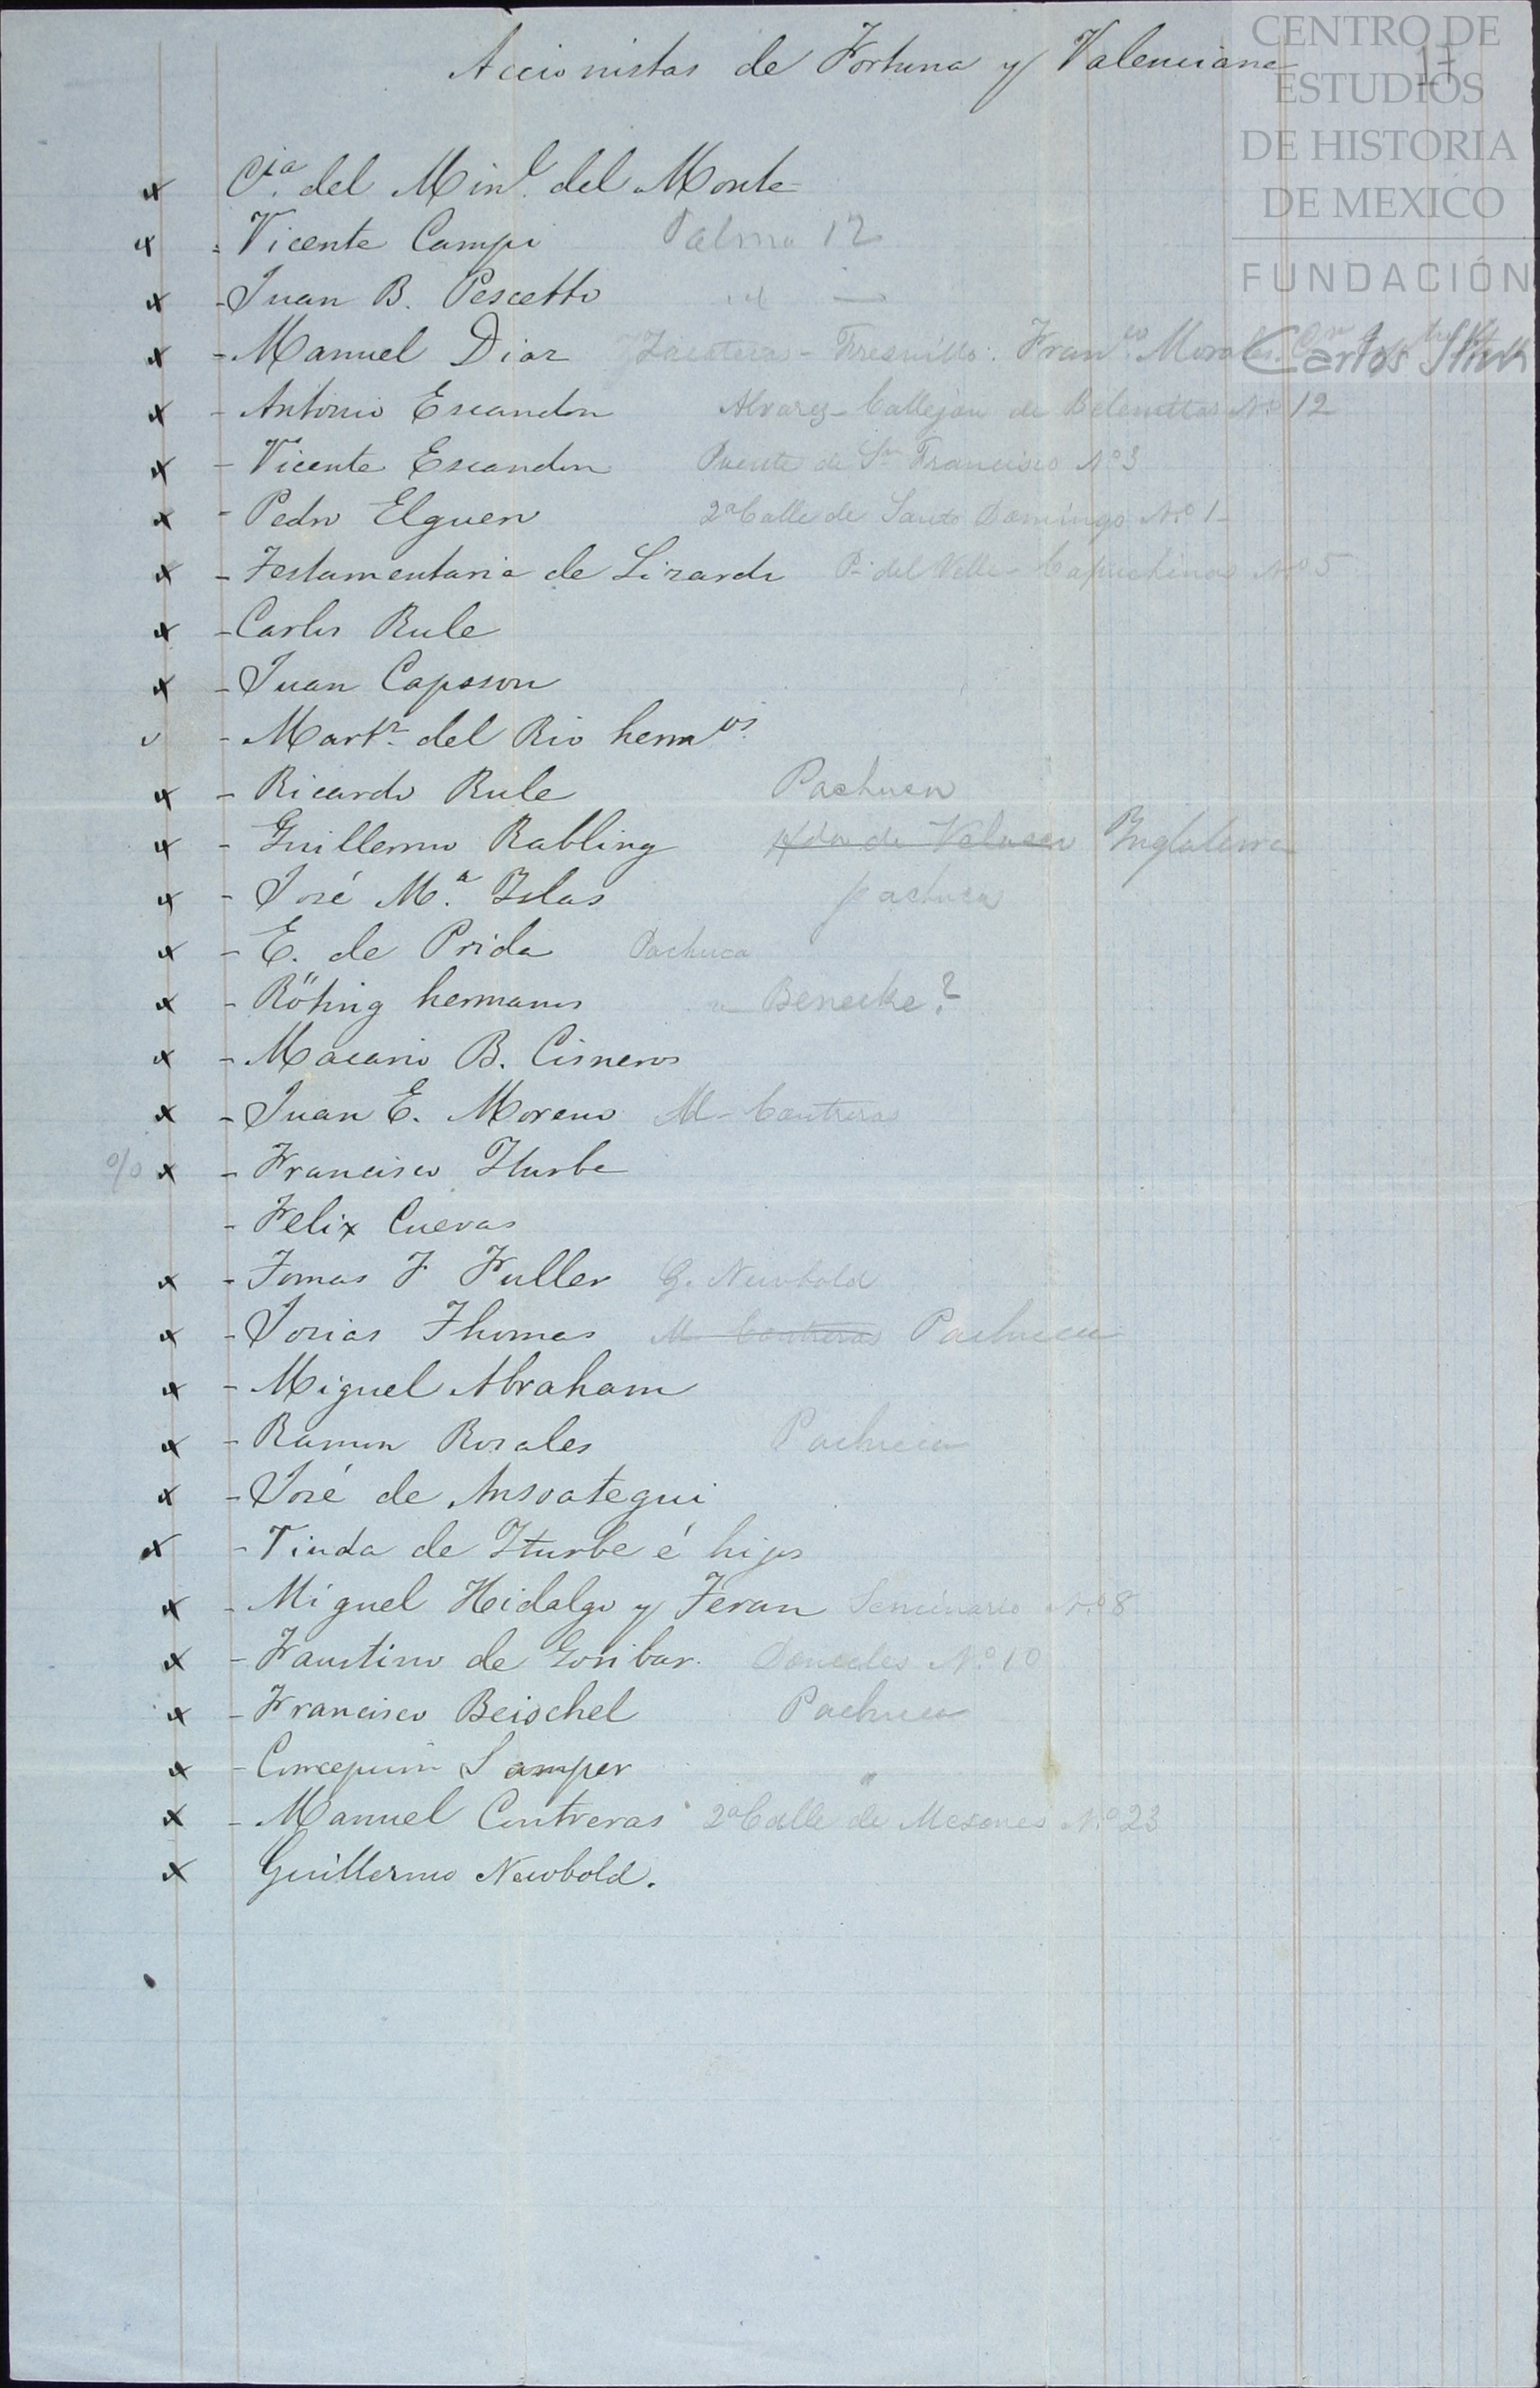 Accionistas de Fortuna y Valenciana
17
CENTRO DE
ESTUDIOS
DE HISTORIA
DE MEXICO
FUNDACIÓN
x Cia. del Minl. del Monte
x - Vicente Campi Palma 12
x - Juan B. Pescetto id —
x - Manuel Diaz Zacatecas - Fresnillo. Franco. Morales
x - Antonio Escandon Alvarez - Callejon de Betlemitas No. 12
x - Vicente Escandon Puente de Sn Francisco No 3
x - Pedro Elguero 2a Calle de Santo Domingo No. 1
x - Testamentaria de Lizardi P. del Valle - Capuchinas No 5
x - Carlos Rule
x - Juan Capsson
- Martz. del Rio hermos.
x - Ricardo Rule Pachuca
x - Guillermo Rabling Hda de Velasco Inglaterra
x - José Ma. Islas Pachuca
x - E. de Prida Pachuca
x - Röhrig hermanos Benecke?
x - Macario B. Cisneros
x - Juan E. Moreno M - Contreras
o/o x - Francisco Iturbe
- Felix Cuevas
x - Tomas F Fuller G. Newbold
x - Josias Thomas M Contreras Pachuca
x - Miguel Abraham
x - Ramon Rosales Pachuca
x - José de Ansoategui
x - Viuda de Iturbe é hijos
x - Miguel Hidalgo y Teran Seminario No. 8
x - Faustino de Goribar. Donceles No. 10
x - Francisco Beischel Pachuca
x - Concepcion Samper
x - Manuel Contreras 2a Calle de Mesones No 23
x Guillermo Newbold.